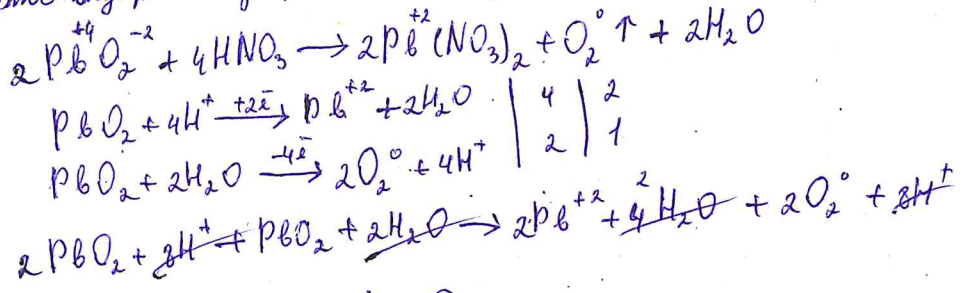 2Pb⁺⁴O₂⁻² + 4HNO₃ → 2Pb⁺²(NO₃)₂ + O₂⁰↑ + 2H₂O
PbO₂ + 4H⁺ —+2ē→ Pb⁺² + 2H₂O | 4 | 2
PbO₂ + 2H₂O —-4ē→ 2O₂⁰ + 4H⁺ | 2 | 1
2PbO₂ + 8H⁺ + PbO₂ + 2H₂O → 2Pb⁺² + 4H₂O 2 + 2O₂⁰ + 8H⁺